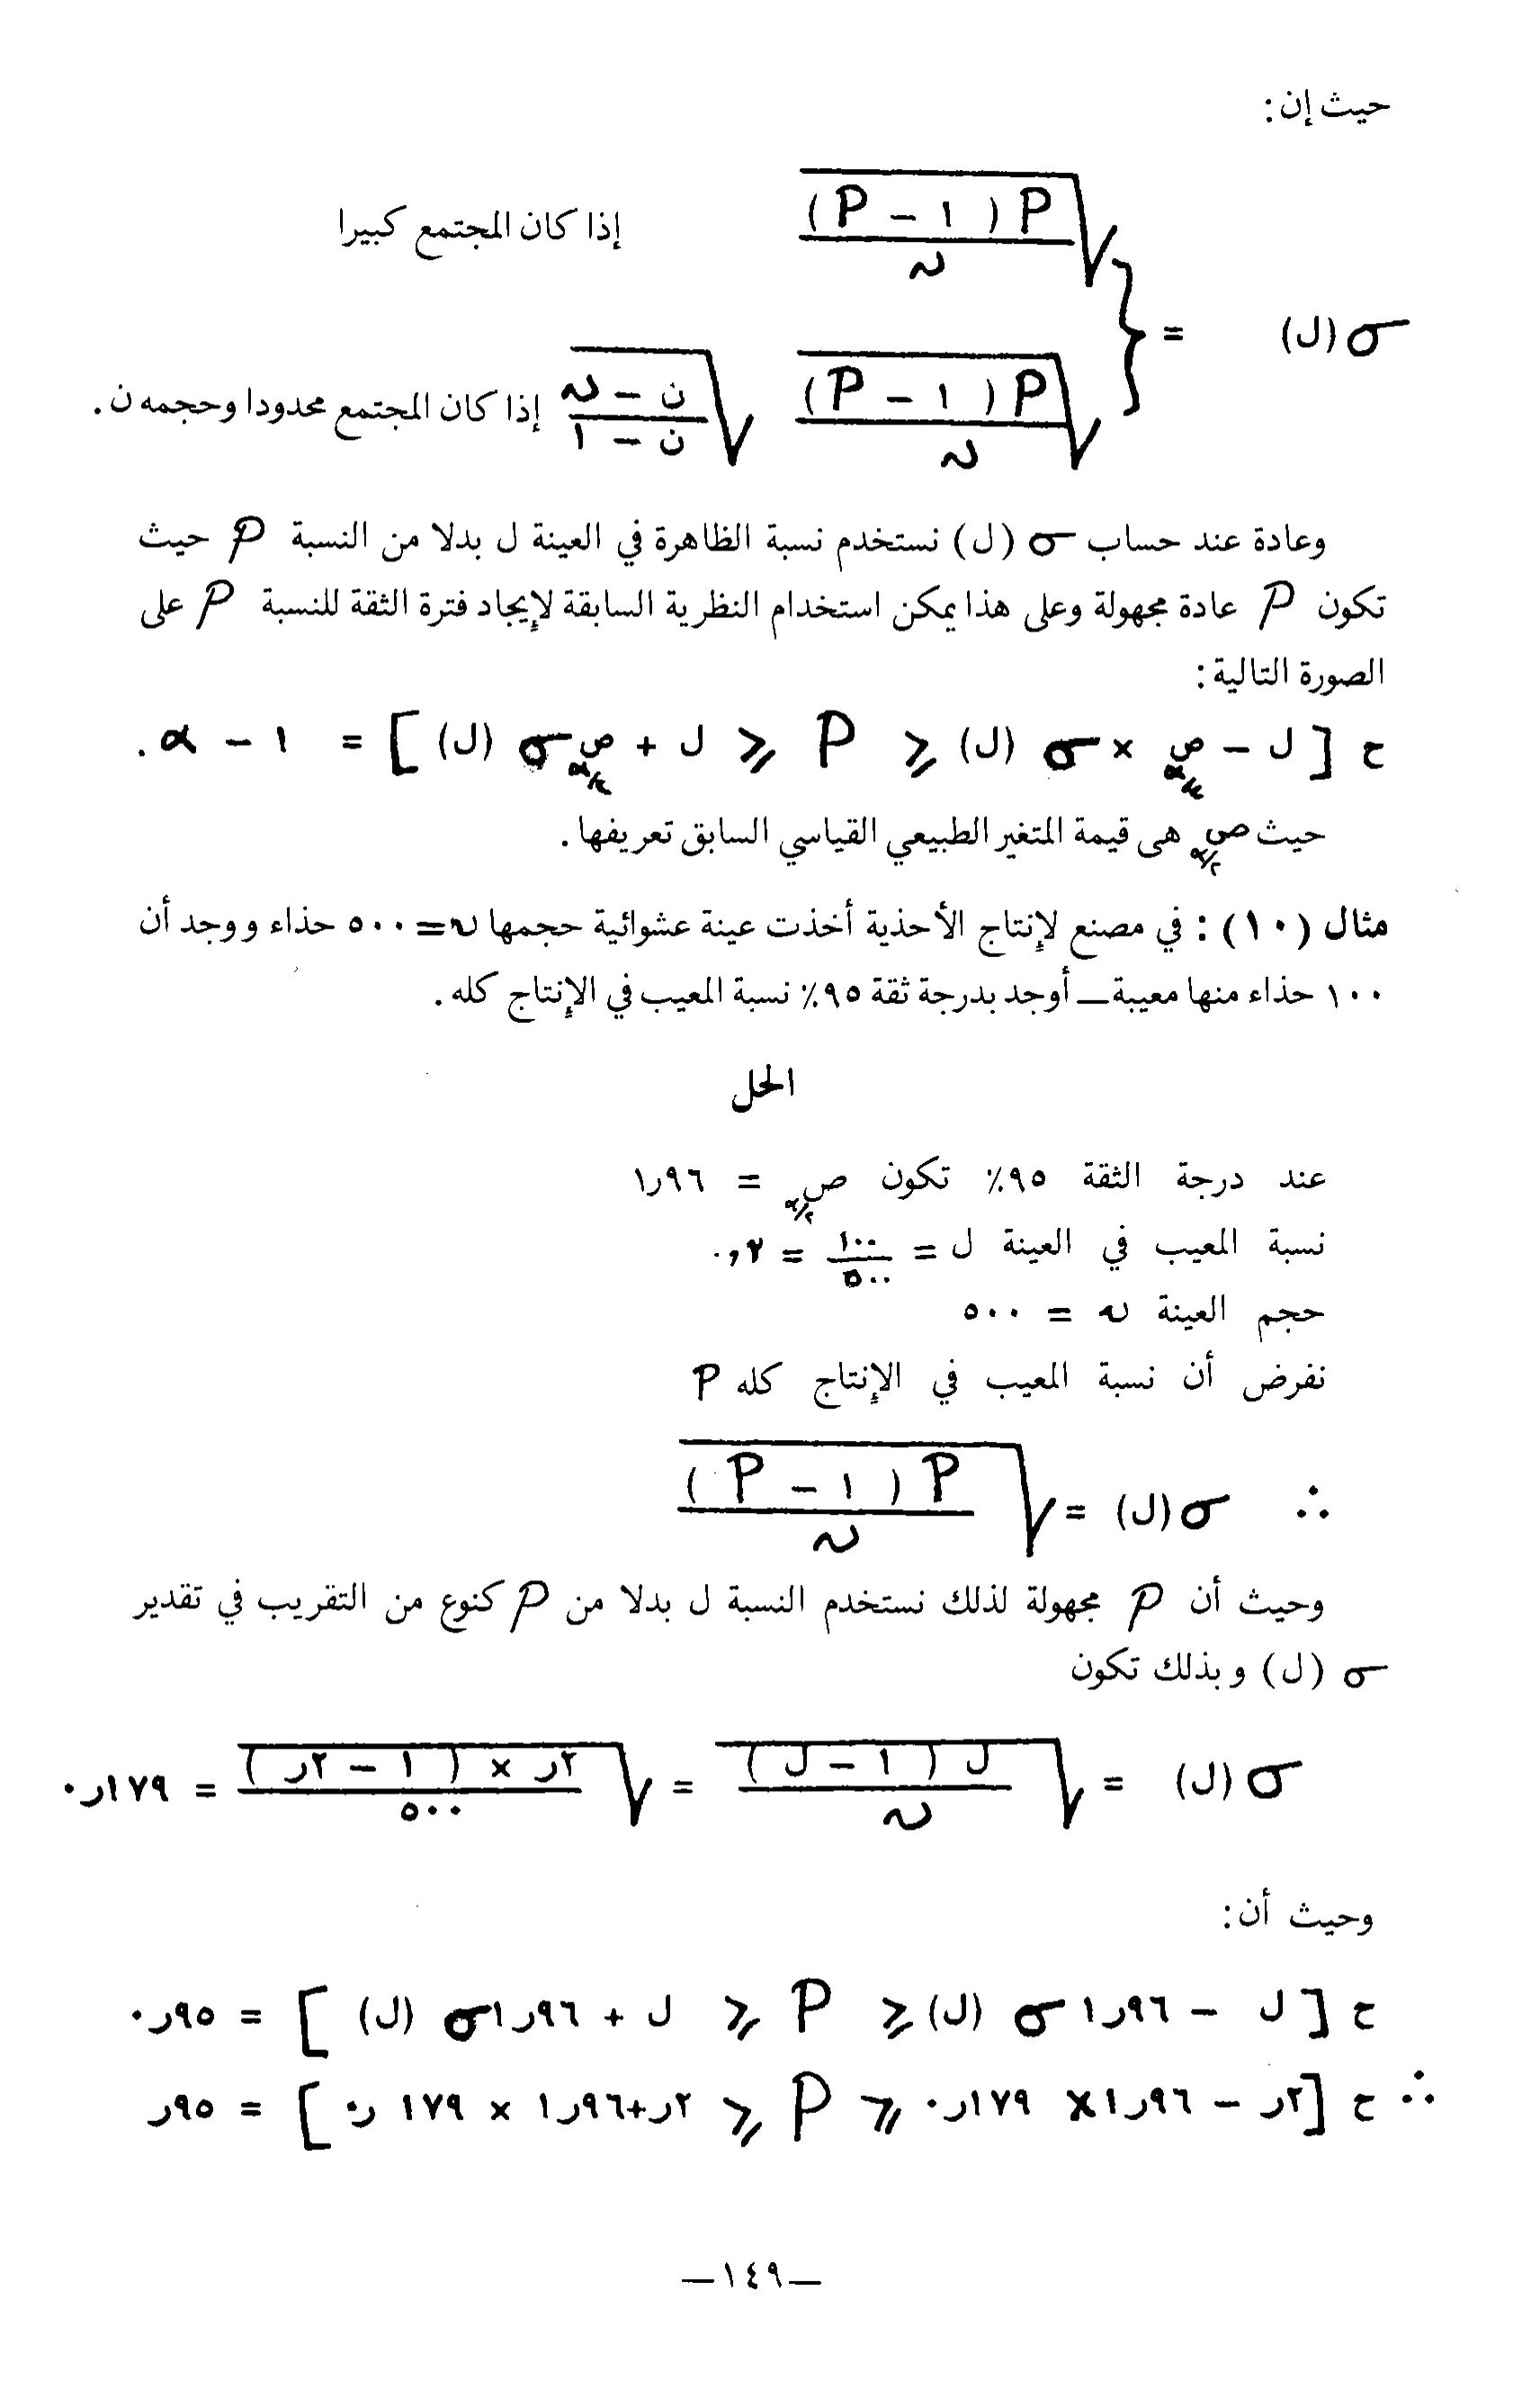 حيث إن:
σ (ل) = { √(P (١ – P) / ﻥ) إذا كان المجتمع كبيرا
√(P (١ – P) / ﻥ) √((ن – ﻥ) / (ن – ١)) إذا كان المجتمع محدودا وحجمه ن.
وعادة عند حساب σ (ل) نستخدم نسبة الظاهرة في العينة ل بدلا من النسبة P حيث
تكون P عادة مجهولة وعلى هذا يمكن استخدام النظرية السابقة لإيجاد فترة الثقة للنسبة P على
الصورة التالية:
ح [ ل – ص α/٢ × σ (ل) ⩽ P ⩽ ل + ص α/٢ σ (ل) ] = ١ – α .
حيث ص α/٢ هى قيمة المتغير الطبيعي القياسي السابق تعريفها.
مثال (١٠) : في مصنع لإنتاج الأحذية أخذت عينة عشوائية حجمها ﻥ = ٥٠٠ حذاء ووجد أن
١٠٠ حذاء منها معيبة ــ أوجد بدرجة ثقة ٩٥٪ نسبة المعيب في الإنتاج كله.
الحل
عند درجة الثقة ٩٥٪ تكون ص α/٢ = ١٫٩٦
نسبة المعيب في العينة ل = ١٠٠/٥٠٠ = ٠٫٢
حجم العينة ﻥ = ٥٠٠
نفرض أن نسبة المعيب في الإنتاج كله P
∴ σ (ل) = √(P (١ – P) / ﻥ)
وحيث أن P مجهولة لذلك نستخدم النسبة ل بدلا من P كنوع من التقريب في تقدير
σ (ل) وبذلك تكون
σ (ل) = √(ل (١ – ل) / ﻥ) = √(٢ر × (١ – ٢ر) / ٥٠٠) = ١٧٩ر٠
وحيث أن:
ح [ ل – ٩٦ر١ σ (ل) ⩽ P ⩽ ل + ٩٦ر١ σ (ل) ] = ٩٥ر٠
∴ ح [ ٢ر – ٩٦ر١ × ١٧٩ر٠ ⩽ P ⩽ ٢ر + ٩٦ر١ × ١٧٩ ر٠ ] = ٩٥ر
—١٤٩—